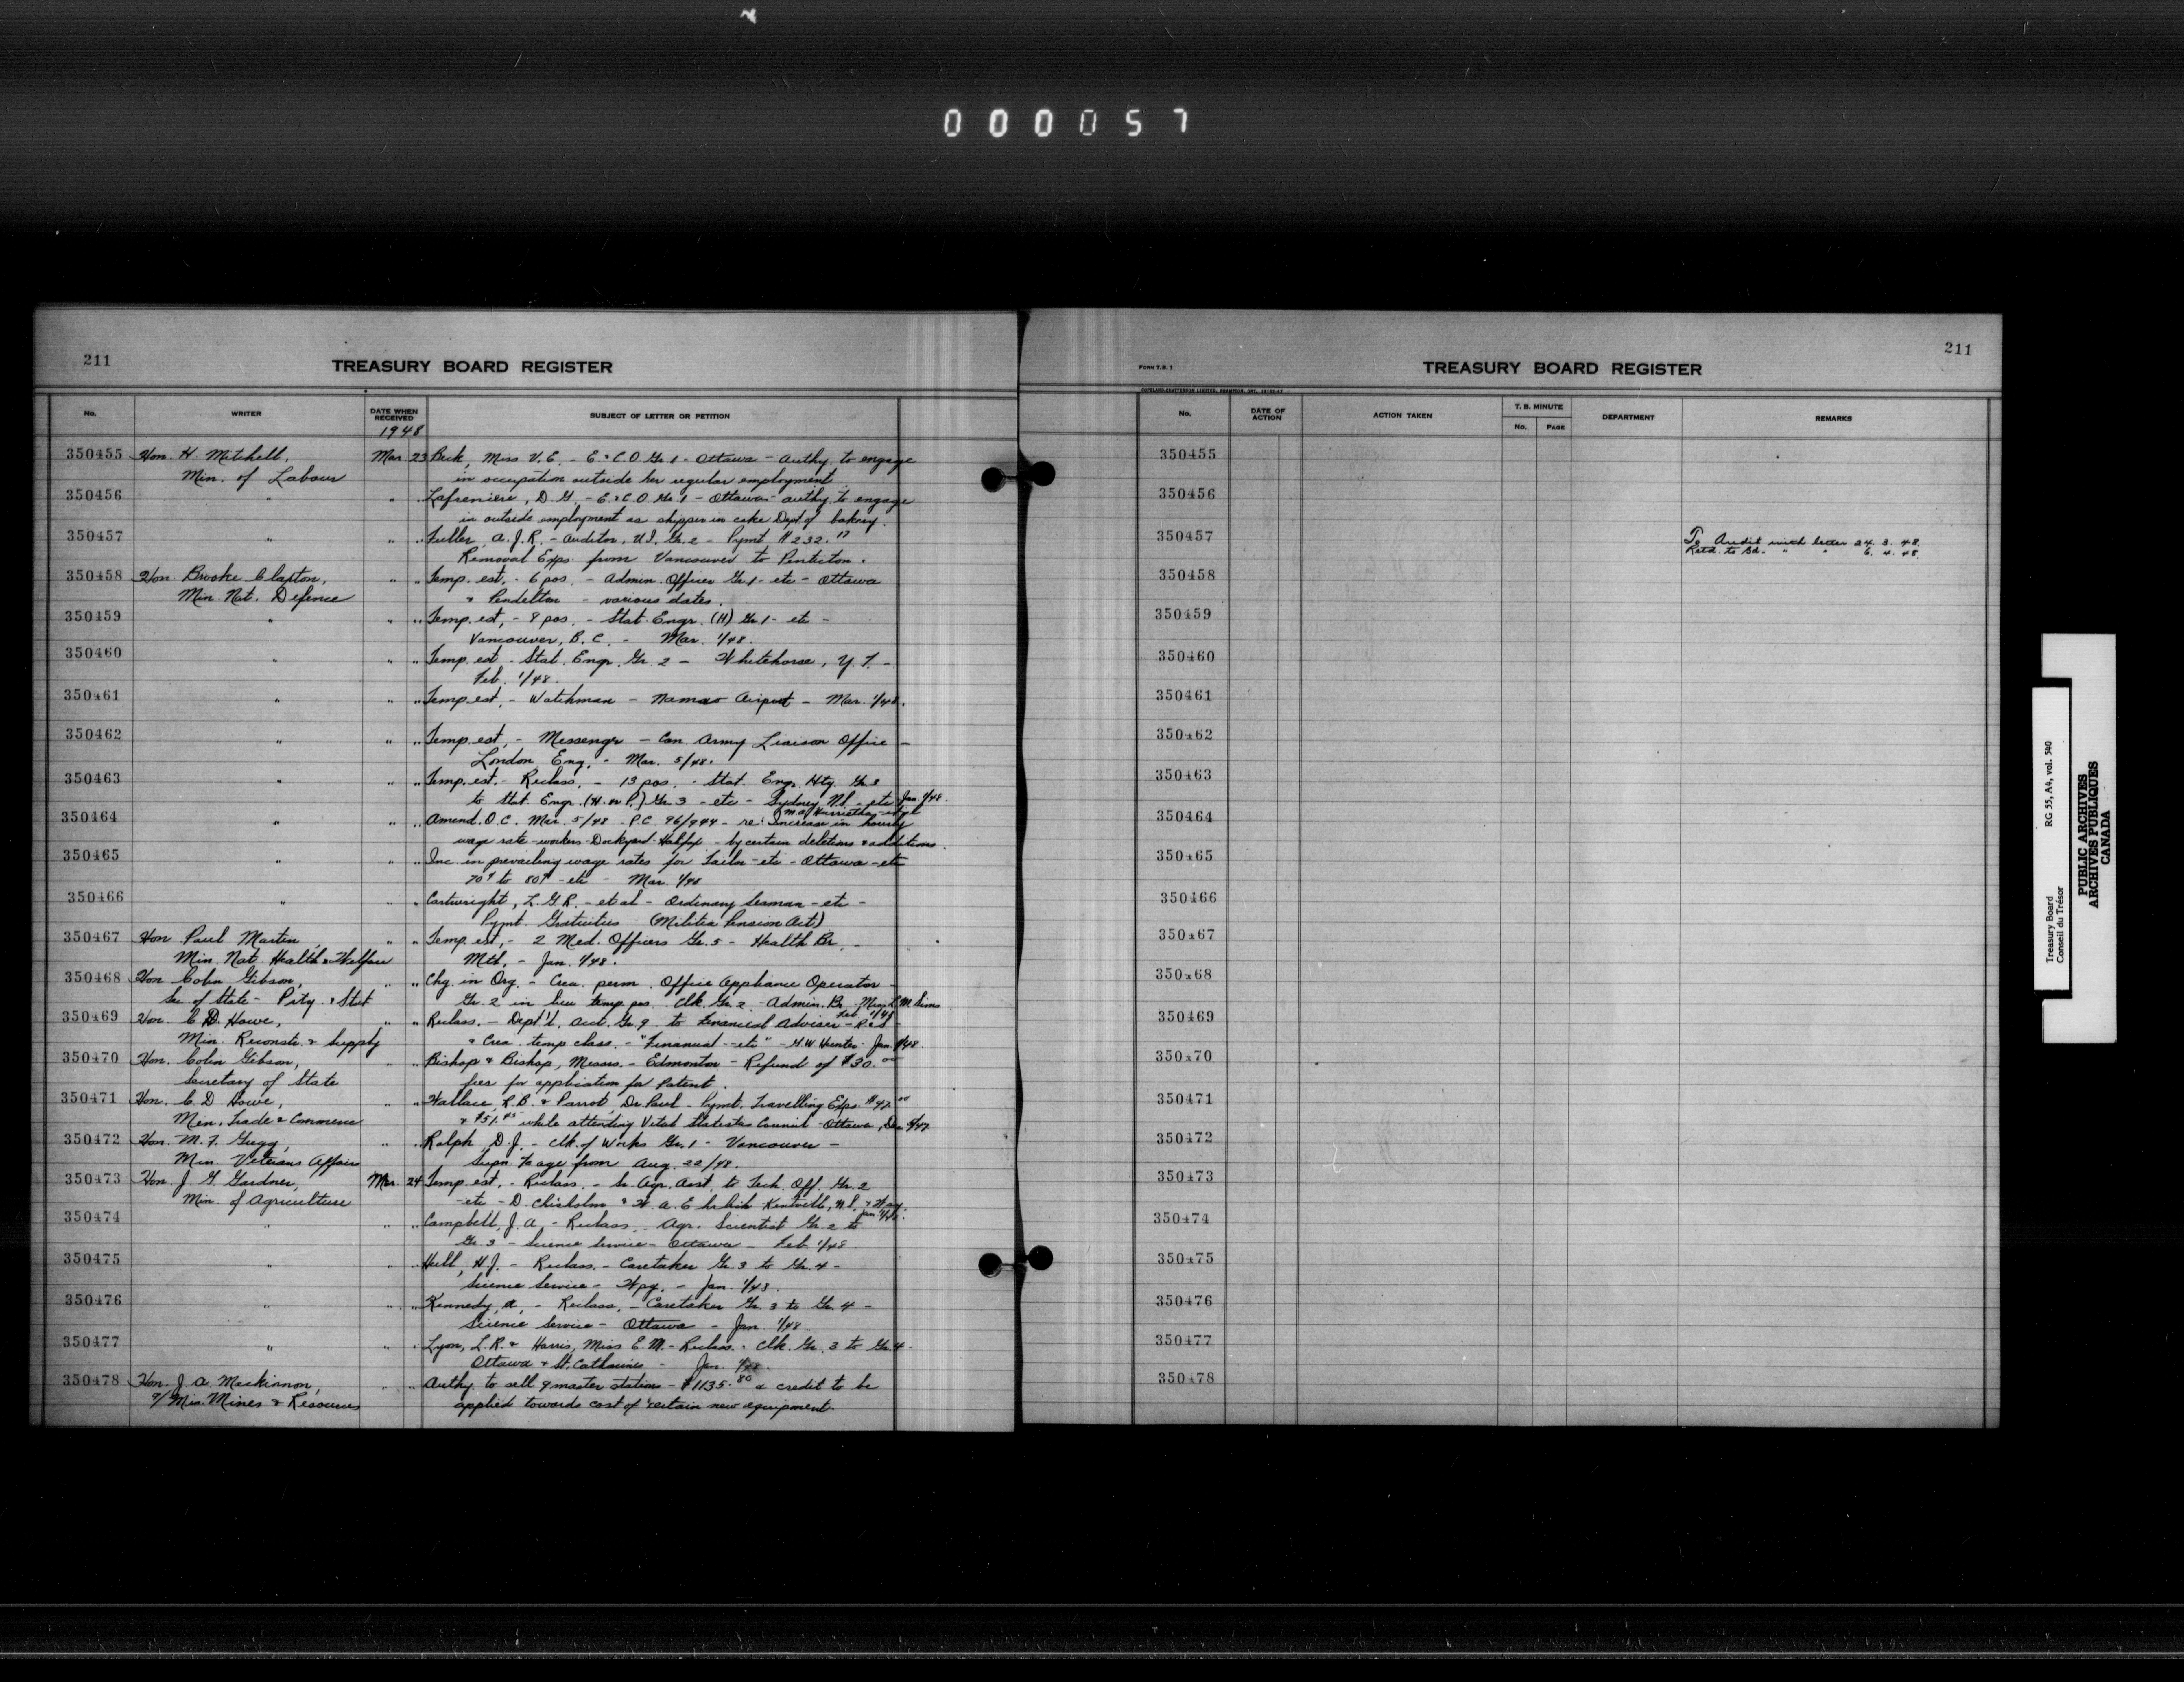 000057
211
TREASURY BOARD REGISTER
No. WRITER DATE WHEN RECEIVED SUBJECT OF LETTER OR PETITION
1948
350455 Hon. H. Mitchell, Mar. 23 Beck, Miss V.E. - E.&C.O. Gr. 1 - Ottawa - Authy. to engage
Min. of Labour in occupation outside her regular employment
350456 " " " Lafreniere, D.G. - E.&C.O. Gr. 1 - Ottawa - authy. to engage
in outside employment as shipper in cake Dept. of bakery.
350457 " " " Fuller, A.J.R. - Auditor, U.I. Gr. 2 - Pymt. $232.17
Removal Exps. from Vancouver to Penticton.
350458 Hon. Brooke Claxton, " " Temp. est. - 6 pos. - Admin. Officer Gr. 1 - etc - Ottawa
Min. Nat. Defence & Pendelton - various dates.
350459 " " " Temp. est, - 8 pos. - Stat. Engr. (H) Gr. 1 - etc -
Vancouver, B.C. - Mar. 1/48.
350460 " " " Temp. est - Stat. Engr. Gr. 2 - Whitehorse, Y.T. -
Feb. 1/48.
350461 " " " Temp. est, - Watchman - Namao Airport - Mar. 1/48.
350462 " " " Temp. est, - Messenger - Can. Army Liaison Office -
London, Eng. - Mar. 5/48.
350463 " " " Temp. est. - Reclass. - 13 pos. - Stat. Eng. Htg. Gr. 3
to Stat. Engr. (H. or P.) Gr. 3 - etc - Sydney N.S. - etc Jan. 1/48.
350464 " " " Amend. O.C. Mar. 5/48 - P.C. 96/944 - re: Increase in hourly
wage rate - workers - Dockyard - Halifax - by certain deletions & additions.
350465 " " " Inc. in prevailing wage rates for Tailor - etc - Ottawa - etc
70¢ to 80¢ - etc - Mar. 1/48
350466 " " " Cartwright, L.G.R. - et al - Ordinary Seaman - etc -
Pymt. Gratuities (Militia Pension Act)
350467 Hon. Paul Martin, " " Temp. est, - 2 Med. Officers Gr. 5 - Health Br. -
Min. Nat. Health & Welfare Mtl, - Jan. 1/48.
350468 Hon. Colin Gibson, " " Chg. in Org. - Crea. perm. Office Appliance Operator -
Sec. of State - Ptg. & Stat Gr. 2 in lieu temp. pos. Clk. Gr. 2 - Admin. Br. - Miss L.M. Sims
Feb. 1/48
350469 Hon. C.D. Howe, " " Reclass. - Dept'l. Acct. Gr. 9 to Financial Adviser - R&S -
Min. Reconstr. & Supply & Crea. temp. class. - "Financial - etc" - H.W. Hunter - Jan. 1/48.
350470 Hon. Colin Gibson, " " Bishop & Bishop, Messrs. - Edmonton - Refund of $30.00
Secretary of State fees for application for Patent.
350471 Hon. C.D. Howe, " " Wallace, R.B. & Parrot, Dr. Paul - Pymt. Travelling Exps. $47.00
Min. Trade & Commerce & $51.45 while attending Vital Statistics Council - Ottawa, Dec.
350472 Hon. M.F. Gregg, " " Ralph, D.J. - Clk. of Works Gr. 1 - Vancouver -
Min. Veterans Affairs from Aug. 22/48.
350473 Hon. J.G. Gardiner, Mar. 24 Temp. est, - Reclass. - Sr. Agr. Asst. to Tech. Off. Gr. 2
Min. of Agriculture - etc - D. Chisholm & W.A.E. Kentville, N.S. & Wpg. Jan. 1/48.
350474 " " " Campbell, J.A, - Reclass. Agr. Scientist Gr. 2 to
Gr. 3 - Science Service - Ottawa - Feb. 1/48
350475 " " " Hull, H.J. - Reclass. - Caretaker Gr. 3 to Gr. 4 -
Science Service - Wpg. - Jan. 1/48.
350476 " " " Kennedy, A. - Reclass. - Caretaker Gr. 3 to Gr. 4 -
Science Service - Ottawa - Jan. 1/48
350477 " " " Lyon, L.R. & Harris, Miss E.M. - Reclass. - Clk. Gr. 3 to Gr. 4 -
Ottawa & St. Catharines - Jan. 1/48.
350478 Hon. J.A. Mackinnon, " " Authy. to sell 9 master stations - $1135.80 & credit to be
a/Min. Mines & Resources applied towards cost of certain new equipment.
211
FORM T.B. 1
TREASURY BOARD REGISTER
No. DATE OF ACTION ACTION TAKEN T. B. MINUTE No. PAGE DEPARTMENT REMARKS
350455
350456
350457 To Audit with letter 24. 3. 48.
Retd. to Bd. " " 6. 4. 48
350458
350459
350460
350461
350462
350463
350464
350465
350466
350467
350468
350469
350470
350471
350472
350473
350474
350475
350476
350477
350478
Treasury Board RG 55, A4, vol. 540
Conseil du Trésor
PUBLIC ARCHIVES
ARCHIVES PUBLIQUES
CANADA